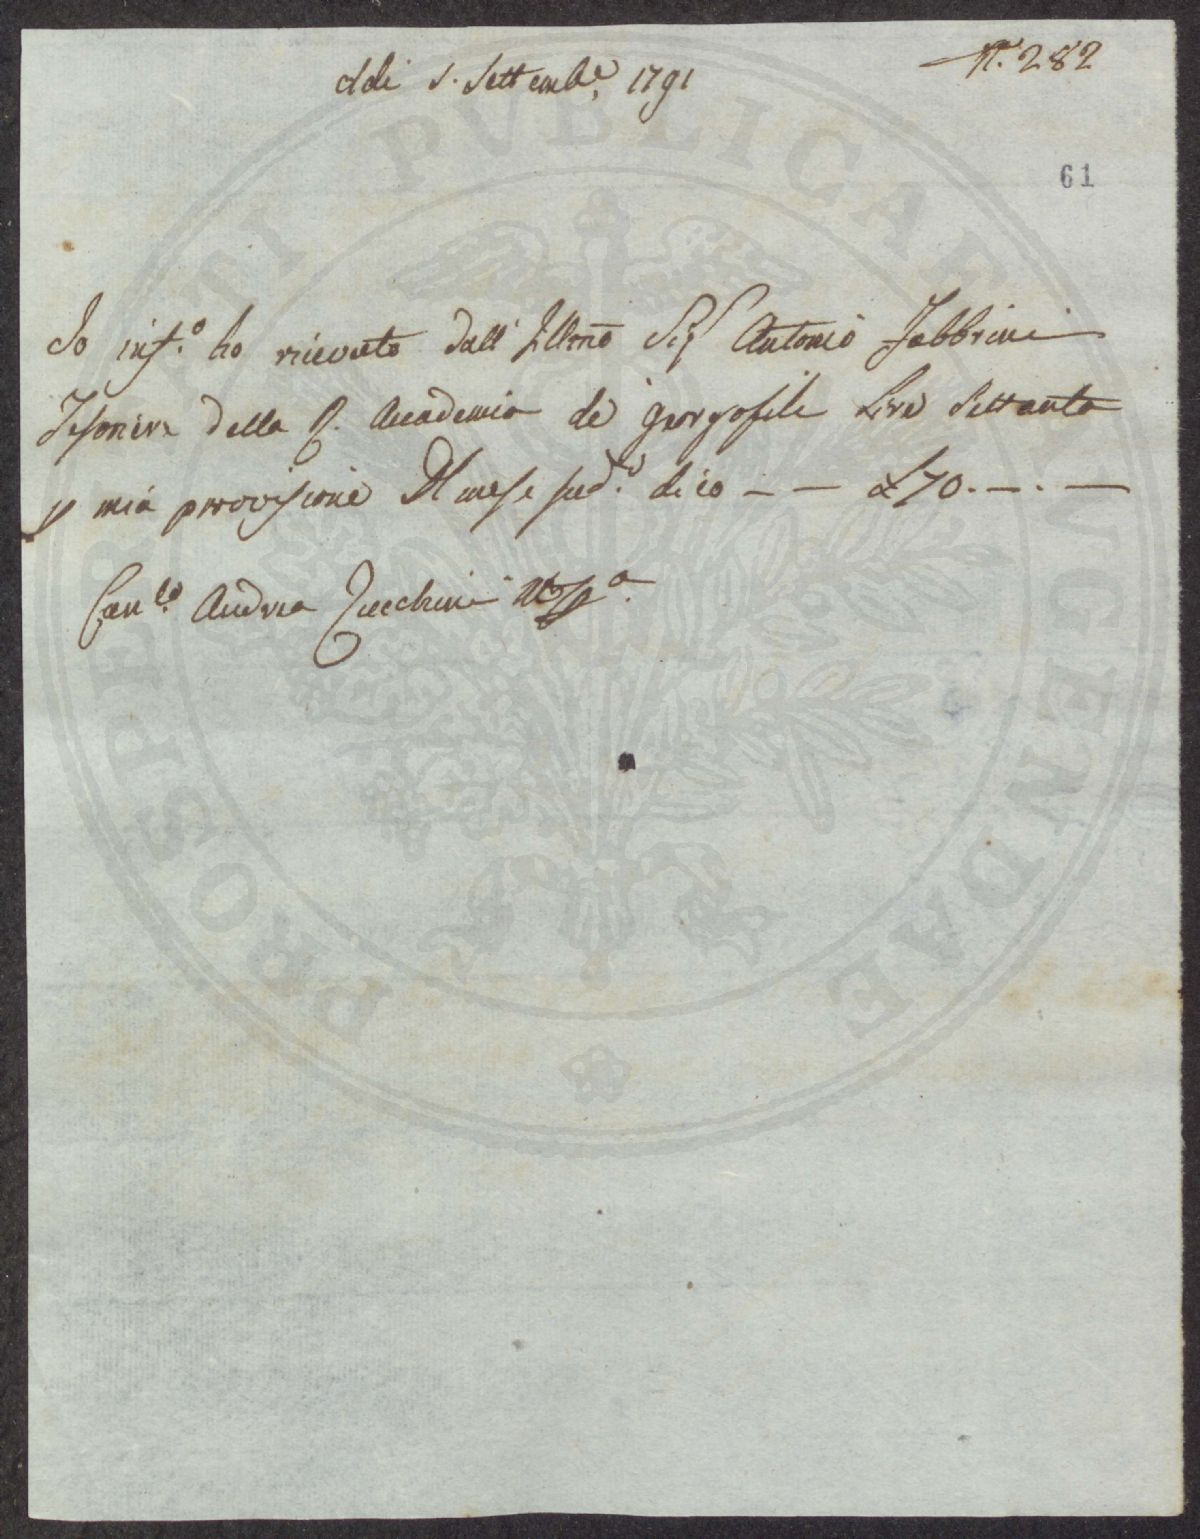 N.° 282
Adi 1. Settemb.e 1791
61
Io inf.o ho ricevuto dall' Illmo Sig.r Antonio Fabbrini
Tesoriere della R. Accademia de' Georgofili Lire Settanta
p mia provvisione Del mese sud.o dico — — £70. — . —
Can.co Andrea Zucchini Mo Pa
PROSPERITATI PVBLICAE AVGENDAE